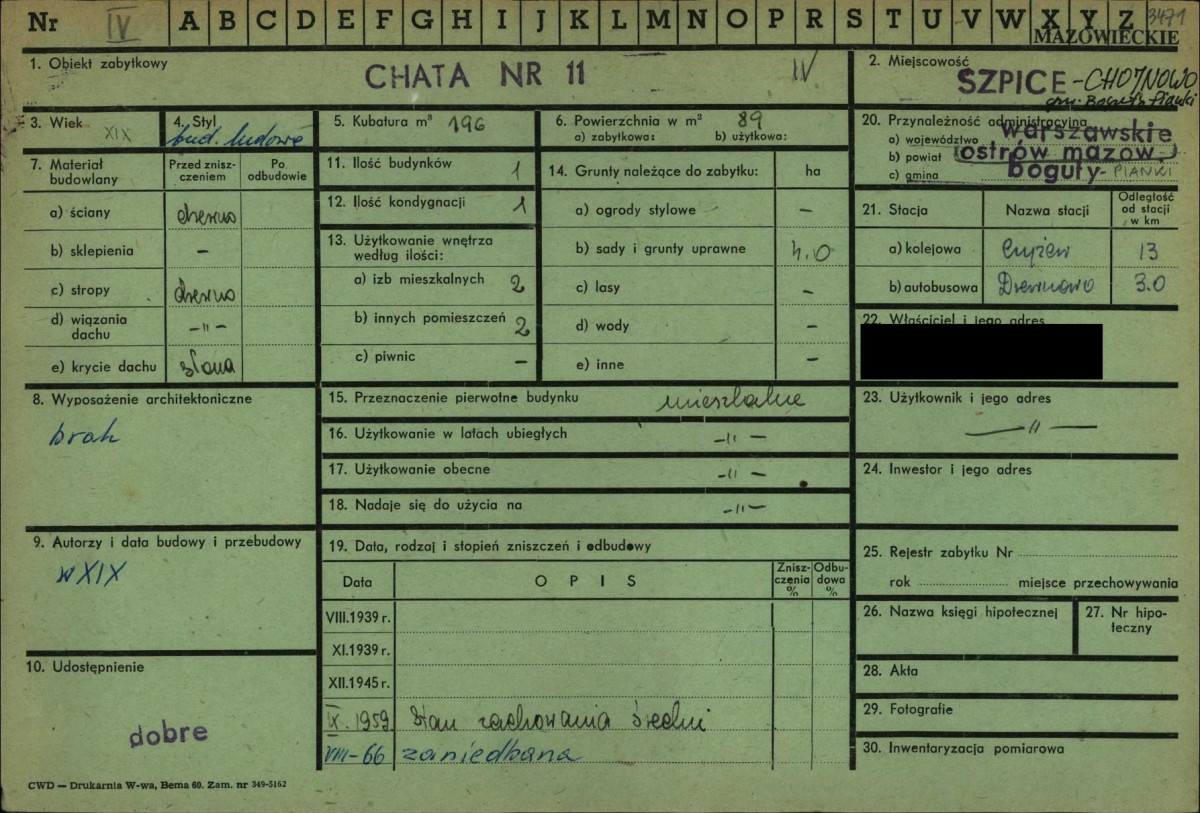 Nr IV A B C D E F G H I J K L M N O P R S T U V W X Y Z 3471
MAZOWIECKIE
1. Obiekt zabytkowy
CHATA NR 11 IV
2. Miejscowość
SZPICE-CHOJNOWO
gm. Boguty Pianki
3. Wiek XIX
4. Styl
bud. ludowe
5. Kubatura m³ 196
6. Powierzchnia w m² 89
a) zabytkowa: b) użytkowa:
20. Przynależność administracyjna
a) województwo warszawskie
b) powiat ostrów mazow.
c) gmina boguty-PIANKI
7. Materiał budowlany
Przed zniszczeniem
Po odbudowie
a) ściany drewno
b) sklepienia –
c) stropy drewno
d) wiązania dachu –"–
e) krycie dachu słoma
11. Ilość budynków 1
12. Ilość kondygnacji 1
13. Użytkowanie wnętrza według ilości:
a) izb mieszkalnych 2
b) innych pomieszczeń 2
c) piwnic –
14. Grunty należące do zabytku: ha
a) ogrody stylowe –
b) sady i grunty uprawne 4.0
c) lasy –
d) wody –
e) inne –
21. Stacja
Nazwa stacji
Odległość od stacji w km
a) kolejowa Czyżew 13
b) autobusowa 3.0
22. Właściciel i jego adres
8. Wyposażenie architektoniczne
brak
15. Przeznaczenie pierwotne budynku mieszkalne
16. Użytkowanie w latach ubiegłych –"–
17. Użytkowanie obecne –"–
18. Nadaje się do użycia na –"–
23. Użytkownik i jego adres
–"–
24. Inwestor i jego adres
9. Autorzy i data budowy i przebudowy
w XIX
19. Data, rodzaj i stopień zniszczeń i odbudowy
Data
OPIS
Zniszczenia %
Odbudowa %
VIII.1939 r.
XI.1939 r.
XII.1945 r.
IX. 1959 Stan zachowania średni
VIII-66 zaniedbana
25. Rejestr zabytku Nr
rok miejsce przechowywania
26. Nazwa księgi hipotecznej
27. Nr hipoteczny
28. Akta
29. Fotografie
30. Inwentaryzacja pomiarowa
10. Udostępnienie
dobre
CWD — Drukarnia W-wa, Bema 60. Zam. nr 349-5162